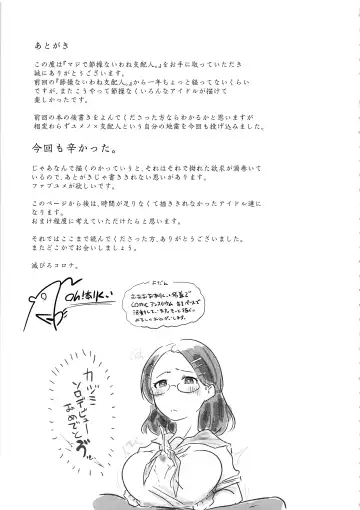 あとがき
この度は『マジで節操ないわね支配人。』をお手に取っていただき
誠にありがとうございます。
前回の『節操ないわね支配人。』から一年ちょっと経ってないくらい
ですが、またこうやって節操なくいろんなアイドルが描けて
楽しかったです。
前回の本の後書きをよんでくださった方ならわかるかと思いますが
相変わらずユメノ×支配人という自分の地雷を今回も投げ込みました。
今回も辛かった。
じゃあなんで描くのかっていうと、それはそれで拗れた欲求が満載でい
るので、あとがきじゃ書ききれない思いがあります。
ファブユメが欲しいです。
このページから後は、時間が足りなくて描ききれなかったアイドル達に
なります。
おまけ程度に考えていただけたらと思います。
それではここまで読んでくださった方、ありがとうございました。
またどこかでお会いしましょう。
滅びろコロナ。
カヅミ
ソロデビュー
おめでとう